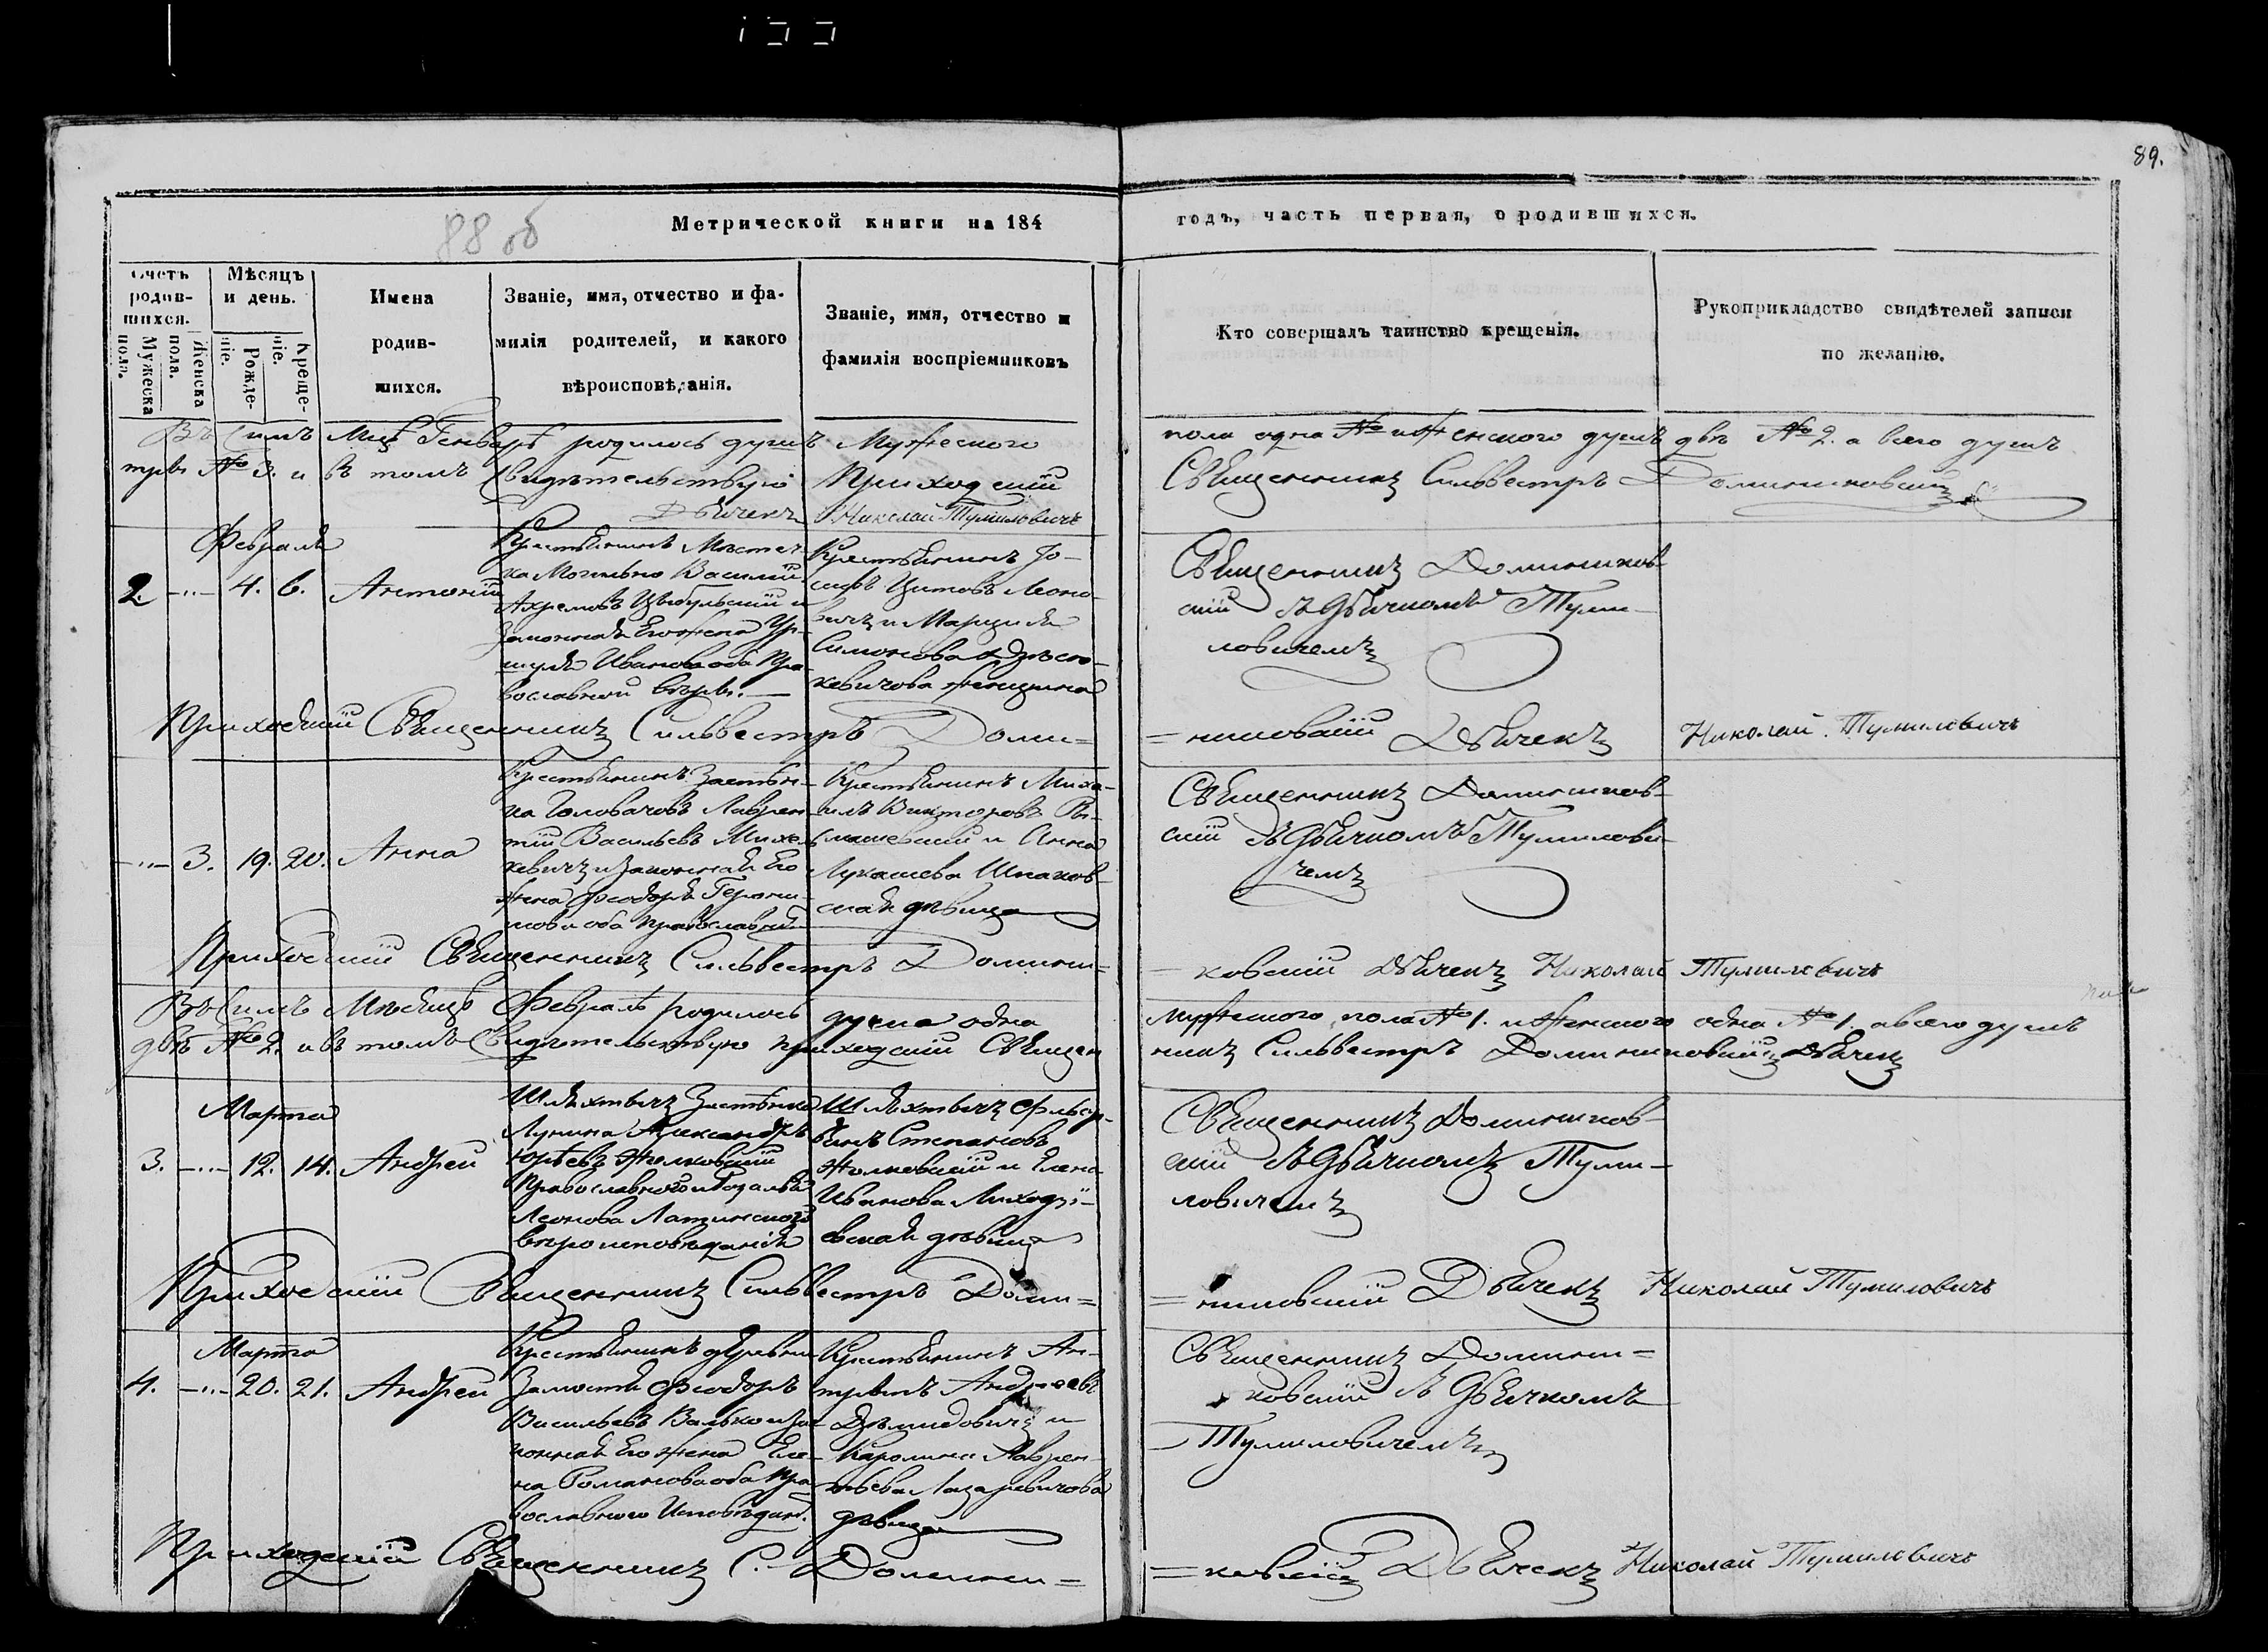 89.
88 об
Метрической книги на 184
годъ, часть первая, о родившихся.
Счетъ родив-шихся.
Мужеска пола.
Женска пола.
Мѣсяцъ и день.
Рожде-ніе.
Креще-ніе.
Имена
родив-
шихся.
Званіе, имя, отчество и фа-
милія родителей, и какого
вѣроисповѣданія.
Званіе, имя, отчество и
фамилія воспріемниковъ
Кто совершалъ таинство крещенія.
Рукоприкладство свидѣтелей записи
по желанію.
Въ симъ Мцѣ Генварѣ родилось душъ Мужеского
пола одна № и Женского душъ двѣ № 2. а всего душъ
три № 3. и въ томъ свидѣтельствую Приходскій
Священникъ Сильвестръ Доминиковскій
Дьячекъ Николай Тумиловичъ
Февраля
2. 4. 6. Антоній
Крестьянинъ Мѣстеч-
ка Могильно Василій
Ахремовъ Цыбульскій и
Законная Его жена Ур-
шуля Иванова оба Пра-
вославной вѣры.
Крестьянинъ Іо-
сифъ Цитовъ Леоно-
вичъ и Марциля
Симонова
кевичова женщина
Священникъ Домиников-
скій съ Дьячкомъ Туми-
ловичемъ
Приходскій Священникъ Сильвестръ Доми=
=никовскій Дьячекъ Николай Тумиловичъ
3. 19. 20. Анна
Крестьянинъ Застѣн-
ка Головачовъ Лаврен-
тій Васильевъ Михал-
кевичъ и Законная Его
жена Феодора Герони-
мова оба православной
Крестьянинъ Миха-
илъ Викторовъ
и Анна
Лукашева Шпаков-
ская дѣвица
Священникъ Домиников-
скій съ Дьячкомъ Тумилови-
чемъ
Приходскій Священникъ Сильвестръ Домини=
ковскій Дьячекъ Николай Тумиловичъ
Въ симъ Мѣсяцѣ Февралѣ родилось душа одна
мужеского пола № 1. и Женского одна № 1. а всего душъ
двѣ № 2. а въ томъ Свидѣтельствую приходскій Священ
никъ Сильвестръ Доминиковскій Дьячекъ
Марта
3. 12. 14. Андрей
Шляхтичъ Застѣнка
Лунина Александръ
Юрьевъ Жолковскій
Православного и Розалья
Леонова Латинского
вѣроисповѣданія
Шляхтичъ Фльор-
янъ Степановъ
Жолковскій и Елена
Иванова
евская дѣвица
Священникъ Домиников-
скій съ Дьячкомъ Туми-
ловичемъ
Приходскій Священникъ Сильвестръ Доми=
=никовскій Дьячекъ Николай Тумиловичъ
Марта
4. 20. 21. Андрей
Крестьянинъ деревни
Замостя Феодоръ
Васильевъ Валько и За-
конная Его жена Еле-
на Романова оба Пра-
вославного Исповѣдан.
Крестьянинъ Ан-
Андреевъ
Дземидовичъ и
Каролина Лаврен-
тьева Лазаревичова
дѣвица
Священникъ Домини=
ковскій съ Дьячкомъ
Тумиловичемъ
Приходскій Священникъ С. Домини=
=ковскій Дьячекъ Николай Тумиловичъ